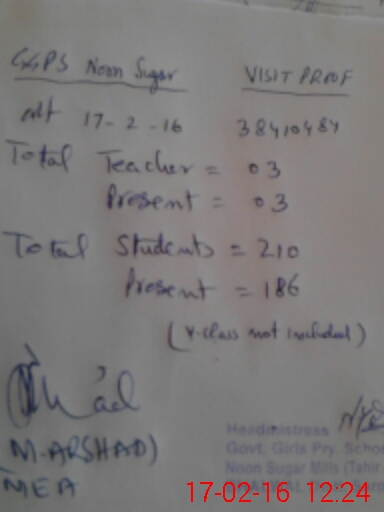 GGPS Noon Sugar VISIT PROOF
17-2-16 38410484
Total Teacher = 03
Present = 03
Total Students = 210
Present = 186
(V-class not included)
M. ARSHAD)
MEA
Headmistress
Govt. Girls Pry. Schoo
Noon Sugar Mills (Tahir
17-02-16 12:24